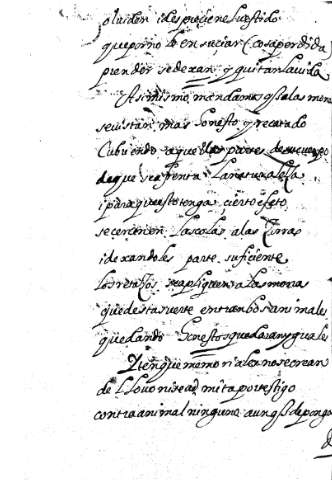 oluiden i desprecien el uestido
que por no lo ensuciar (cosa perdida
pierden se dexan y quitan la vida
Asimismo mandamos q̃ las monas
se vistan mas honesto y recatado
Cubriendo aquellas partes de su cuerpo
de que se afrenta la naturaleza
i para que esto tenga cierto efeto
se cercenen las colas a las Zorras
i dexandoles parte suficiente
los retaços se apliquen a las monas
que desta suerte entrambos animales
quedando honestos quedaran yguales
Yten que mono ni alano se crean
de llouo ni se admita por testigo
contra animal ninguno aunq̃ deponga